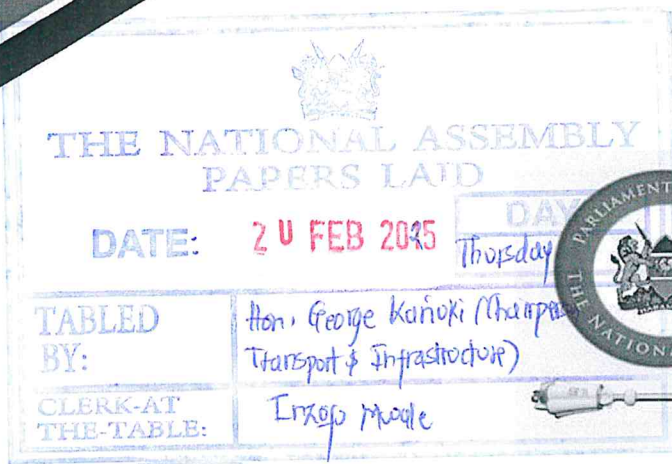 THE NATIONAL ASSEMBLY
PAPERS LAID
DATE: 20 FEB 2025
DAY
Thursday
TABLED BY:
Hon. George Kariuki (Chairper
Transport & Infrastructure)
CLERK-AT THE-TABLE:
PARLIAMENT
THE NATIONA